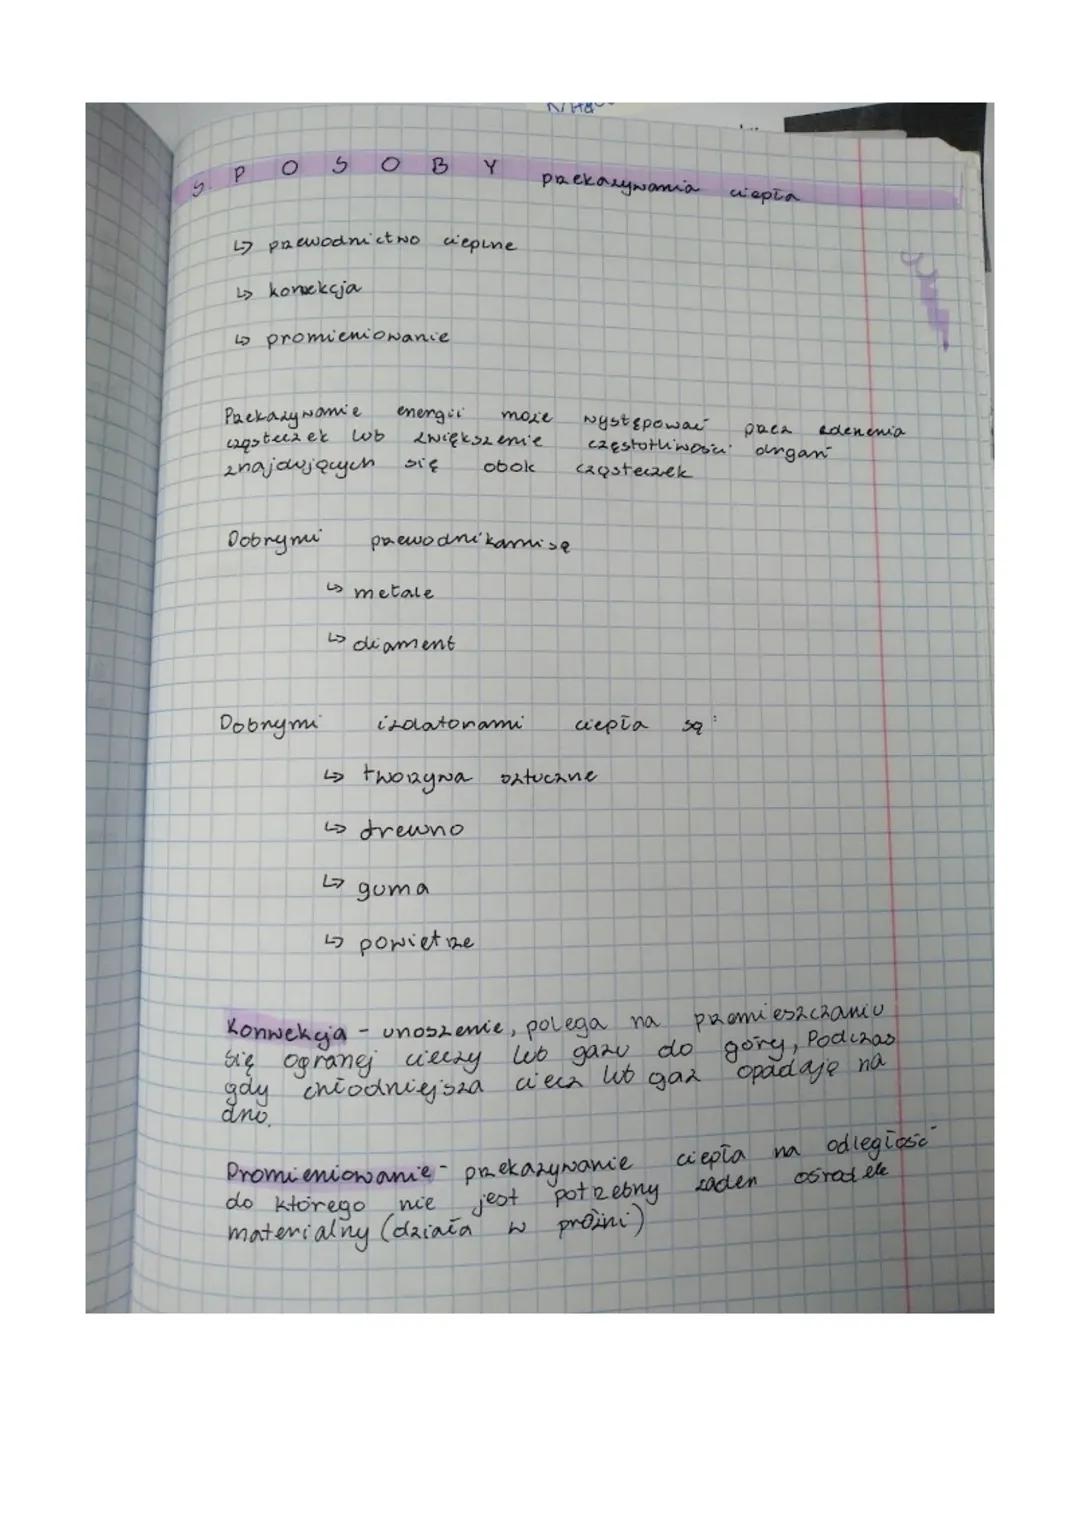 SPOSOBY przekazywania ciepła
↳ przewodnictwo cieplne
↳ konwekcja
↳ promieniowanie
Przekazywanie energii może występować przez zderzenia
cząsteczek lub zwiększenie częstotliwości drgań
znajdujących się obok cząsteczek
Dobrymi przewodnikami są
↳ metale
↳ diament
Dobrymi izolatorami ciepła są:
↳ tworzywa sztuczne
↳ drewno
↳ guma
↳ powietrze
Konwekcja - unoszenie, polega na przemieszczaniu
się ogranej cieczy lub gazu do góry, Podczas
gdy chłodniejsza ciecz lub gaz opadają na
dno.
Promieniowanie - przekazywanie ciepła na odległość
do którego nie jest potrzebny żaden ośrodek
materialny (działa w próżni)